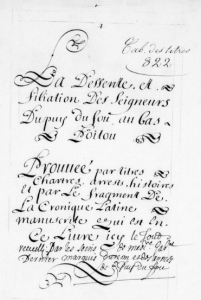 Cab. des titres
822
La Dessente, et
filiation Des Seigneurs
Du puy du fou, au bas
Poitou
Prouuee, par titres
Chartres, arrests, histoires
et par Le fragment De
La Cronique Latine
manuscrite qui est En
Ce Liure, icy Le tout
recueilly Par les soins de
Dernier marquis
Du Puy du fou